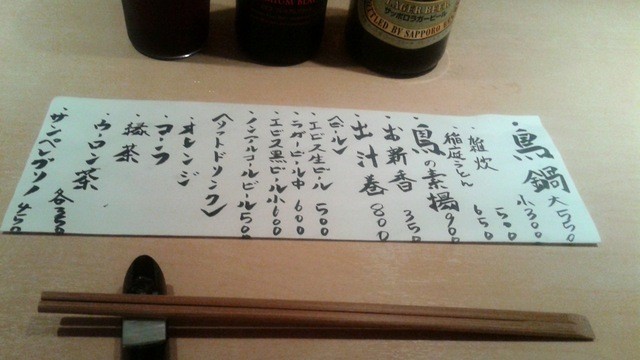 LAGER BEER
サッポロラガービール
BOTTLED BY SAPPORO
・鳥鍋 大550
小300
・雑炊 500
稲庭うどん 650
・鳥の素揚 900
・お新香 350
・出汁巻 800
〈ビール〉
・エビス生ビール 500
・ラガービール中 600
・エビス黒ビール小 600
・ノンアルコールビール 500
〈ソフトドリンク〉
・オレンジ
・コーラ
・緑茶
・ウーロン茶 各300
・サンペレグリノ 450